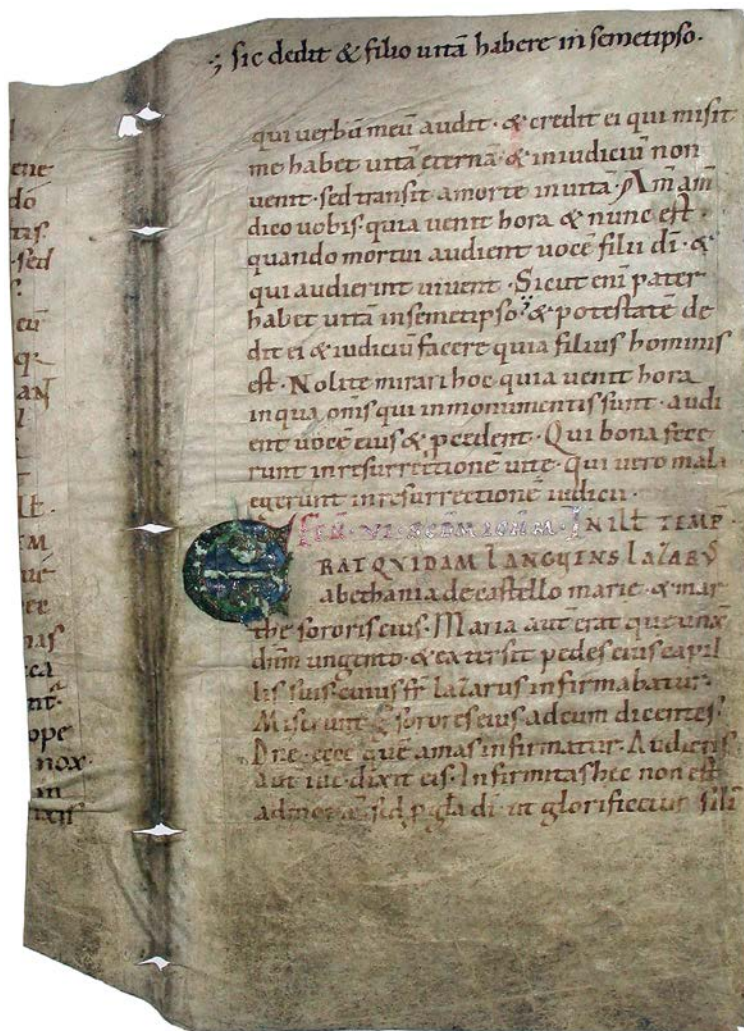 ·; sic dedit & filio uitā habere in semetipso·
ene
dō
tas.
·sed
s·
eū
q·
AN
l
lt̄·
EM
uē
ee
nas
ea
nt·
ope
nox·
in
ixit
qui uerbū meū audit· & credit ei qui misit
me habet uitā eternā· & iniudiciū non
uenit· sed transit amorte inuitā· Am̄ am̄
dico uobis· quia uenit hora & nunc est·
quando mortui audient uocē filii dī· &
qui audierint uiuent· Sicut eni pater
habet uitā insemetipso·; & potestatē de
dit ei & iudiciū facere quia filius hominis
est· Nolite mirari hoc quia uenit hora
inqua om̄s qui inmonumentis sunt· audi
ent uocē eius & pcedent· Qui bona fece
runt inresurrectionē uite· qui uero mala
egerunt inresurrectionē iudicii·
INILL̄ TEMP̄
ERAT QVIDAM LANGUENS LAZARVS
abethania decastello marie· & mar
the sororis eius· Maria aut̄ erat que unx̄
dn̄m ungento· & extersit pedes eius capil
lis suis· cuius fr̄ lazarus infirmabatur·
Miserunt g sorores eius adeum dicentes·
Dne· ecce quē amas infirmatur· Audiens
aut̄ ihc· dixit eis· Infirmitas hec non est
admortē· sed p gl̄a dī· ut glorificetur fili